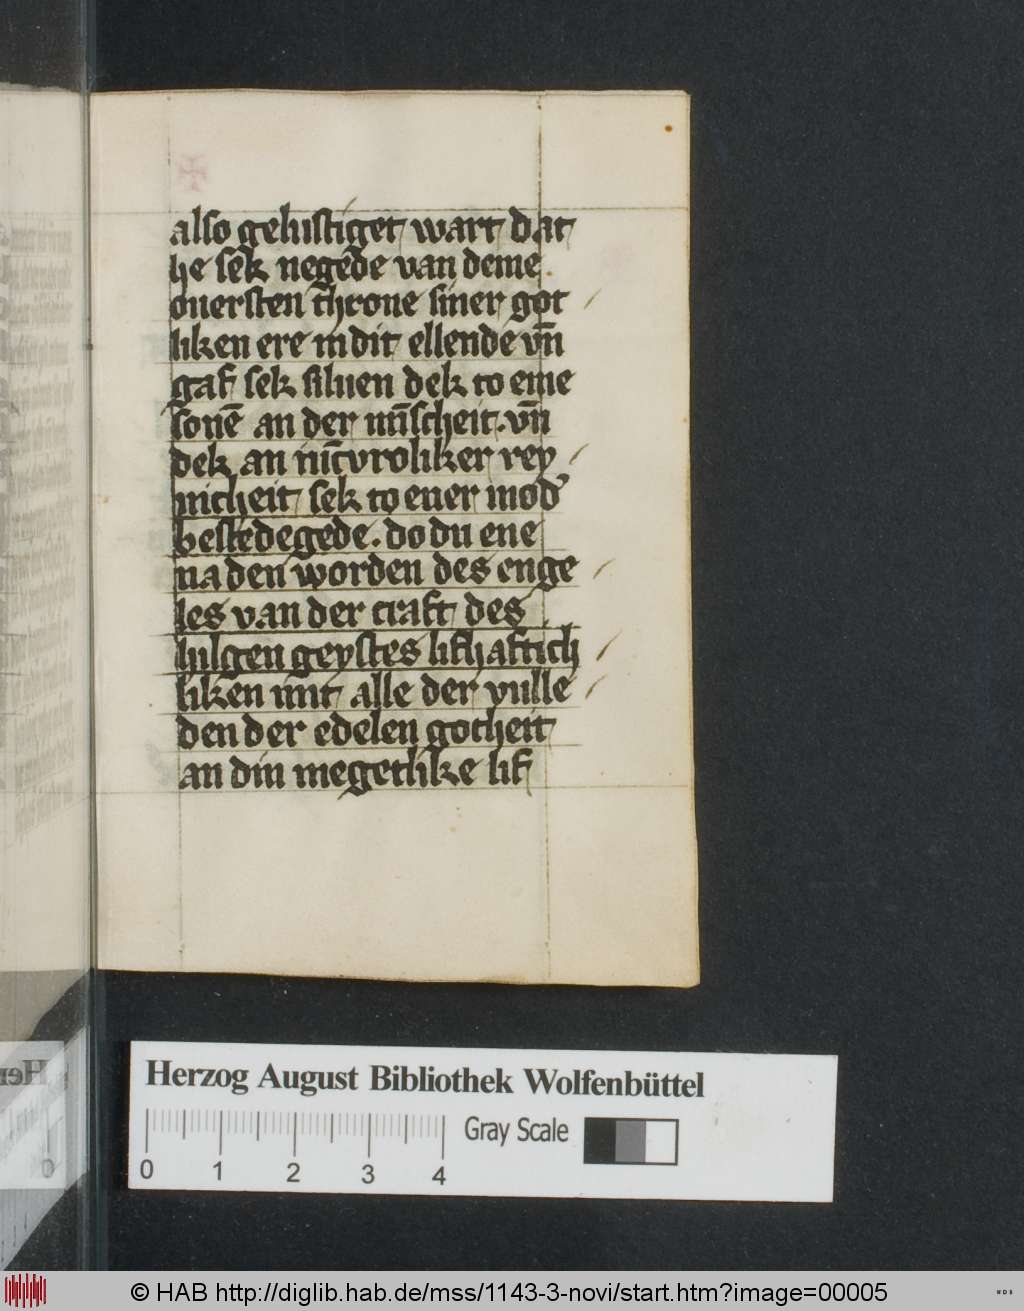 also gelustiget wart dat
he sek negede van deme
ouersten throne siner got
liken ere in dit ellende vn̄
gaf sek siluen dek to eme
sonē an der mīscheit. vn̄
dek an nūcvroliker rey
nicheit sek to ener mod᾽
bestedegede. do du ene
na den worden des enge
les van der craft des
hilgen geystes lifhaftich
liken mit alle der vulle
den der edelen gotheit
an din megetlike lif
Herzog August Bibliothek Wolfenbüttel
Gray Scale
0 1 2 3 4
© HAB http://diglib.hab.de/mss/1143-3-novi/start.htm?image=00005